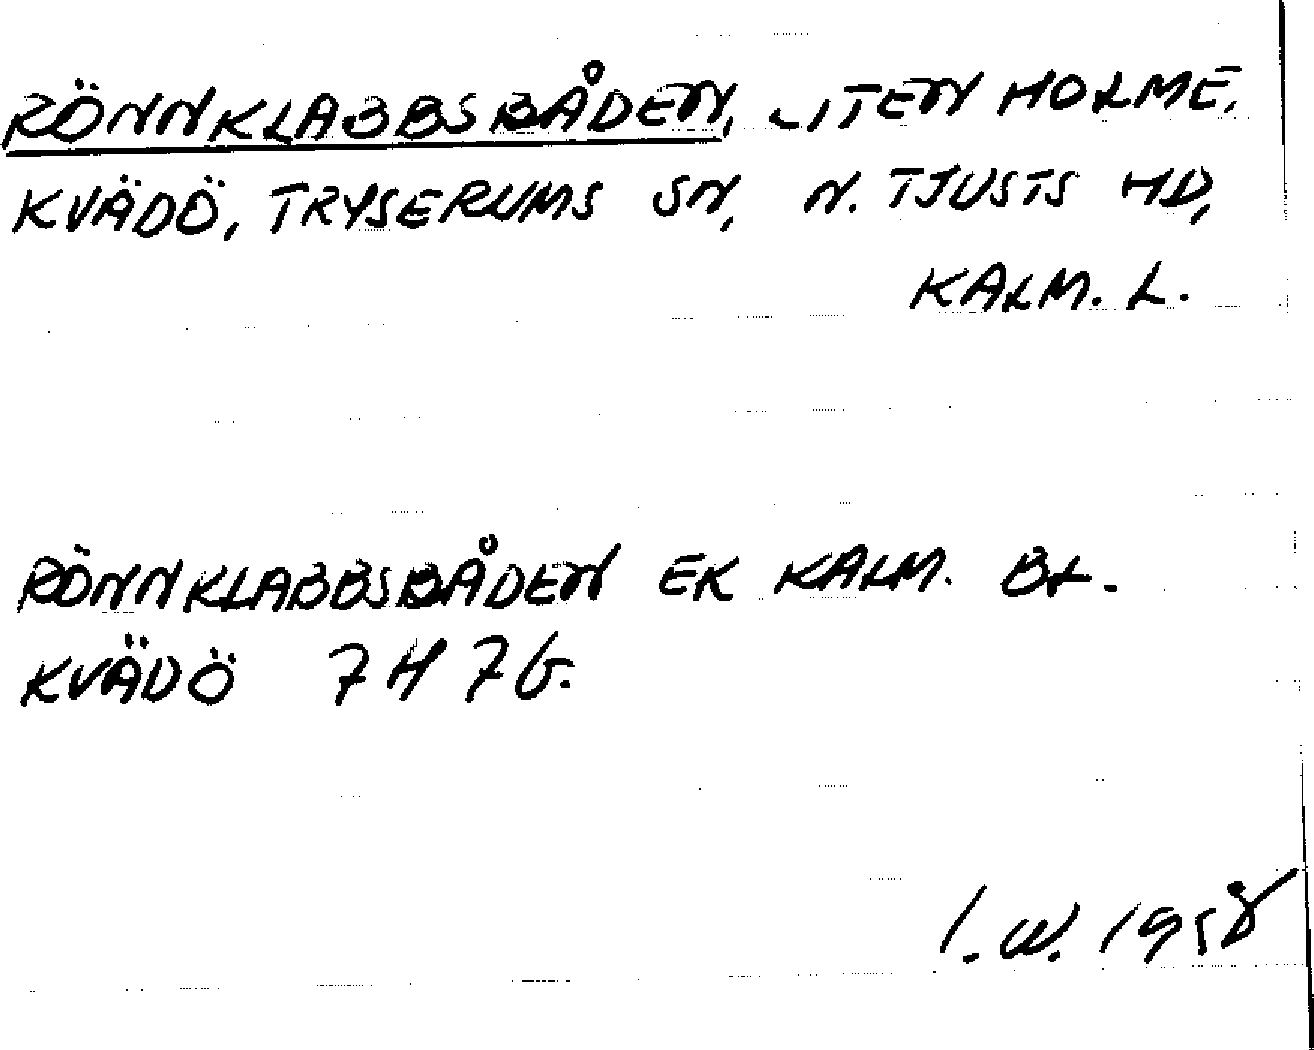 RÖNNKLABBSBÅDEN, LITEN HOLME,
KVÄDÖ, TRYSERUMS SN, N. TJUSTS HD,
KALM. L.
RÖNNKLABBSBÅDEN EK KALM. BL.
KVÄDÖ 7H 7G.
I.W. 1958